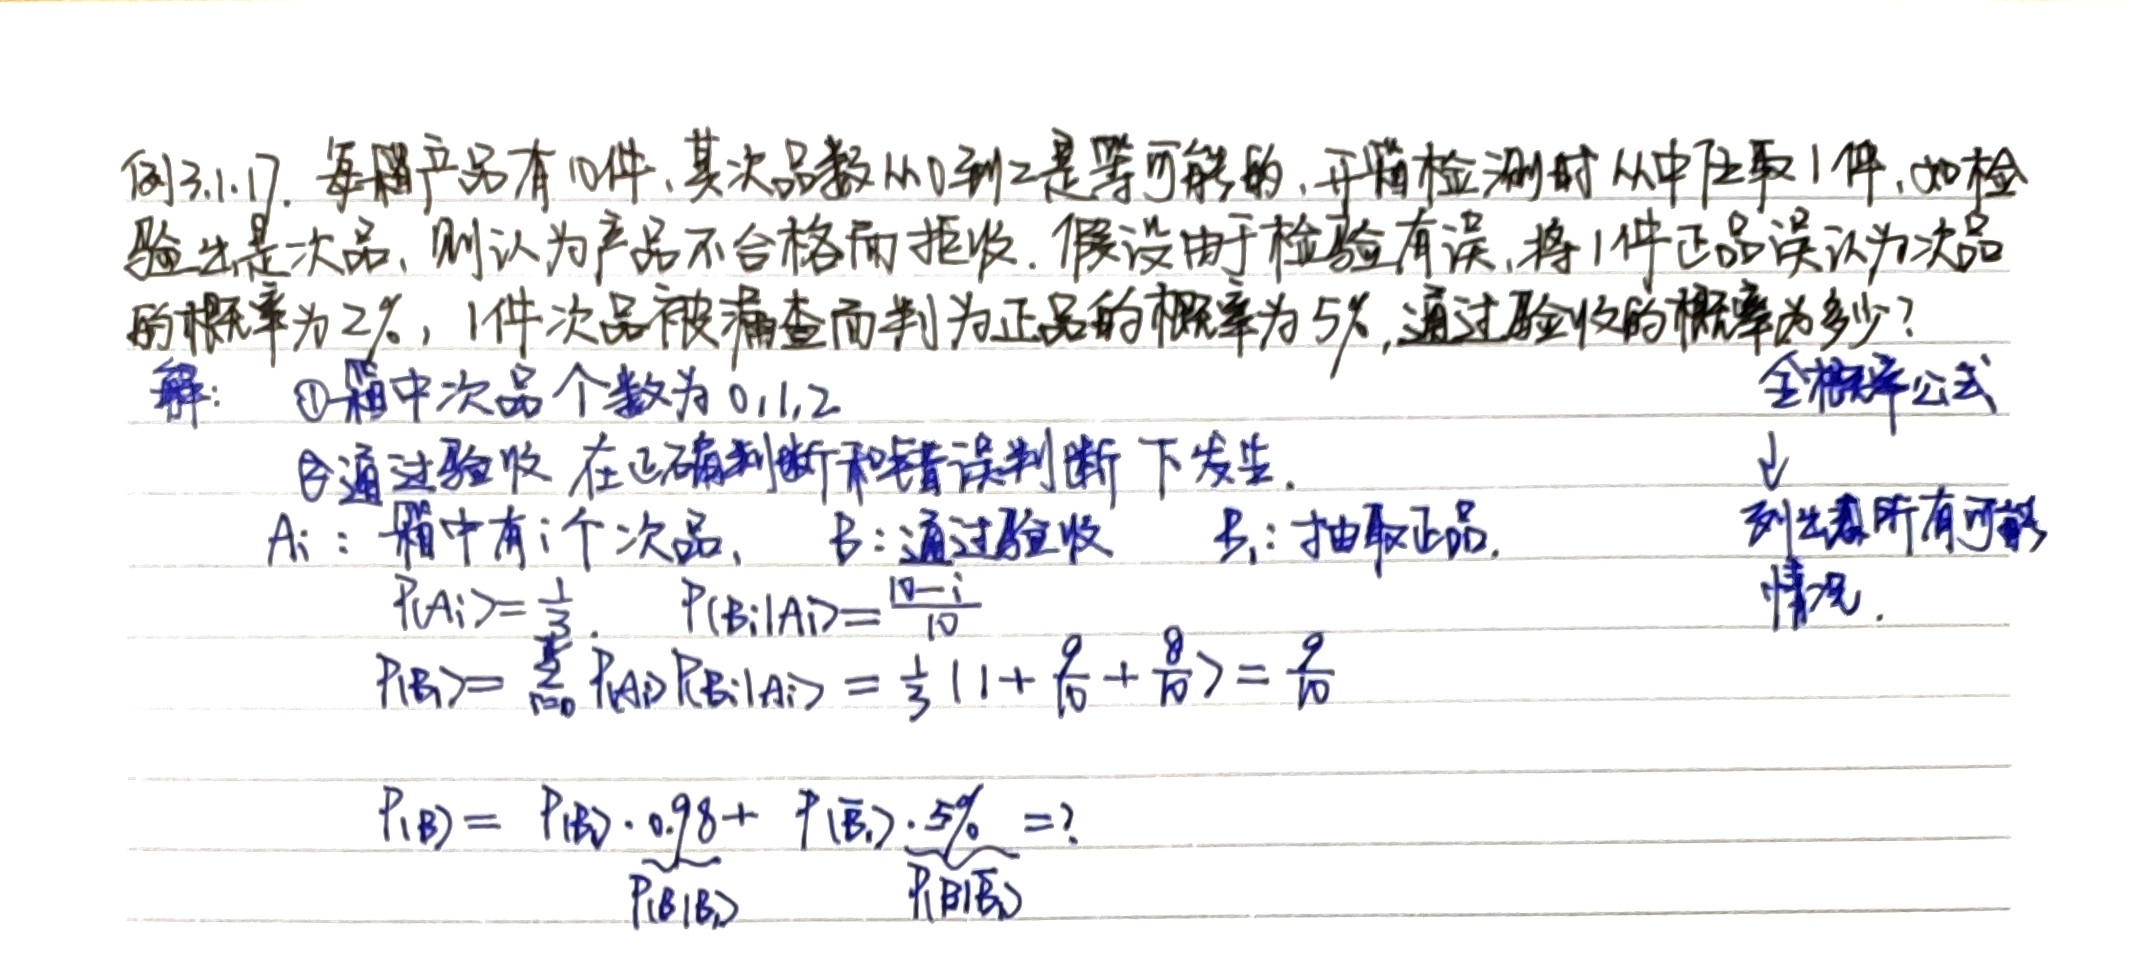 例3.1.17. 每箱产品有10件,其次品数从0到2是等可能的,开箱检测时从中任取1件,如检
验出是次品,则认为产品不合格而拒收.假设由于检验有误,将1件正品误认为次品
的概率为2%,1件次品被漏查而判为正品的概率为5%,通过验收的概率为多少?
解: ①箱中次品个数为0,1,2
全概率公式
②通过验收 在正确判断和错误判断 下发生.
↓
Ai: 箱中有i个次品, B:通过验收 B₁:抽取正品.
列出所有可能
情况.
P(Ai)=1/3. P(B₁|Ai)=(10-i)/10
P(B₁)=∑_{i=0}^{2} P(Ai)P(B₁|Ai)=1/3(1+9/10+8/10)=9/10
P(B)= P(B₁)·0.98+ P(B̄₁)·5% =?
P(B|B₁) P(B|B̄₁)